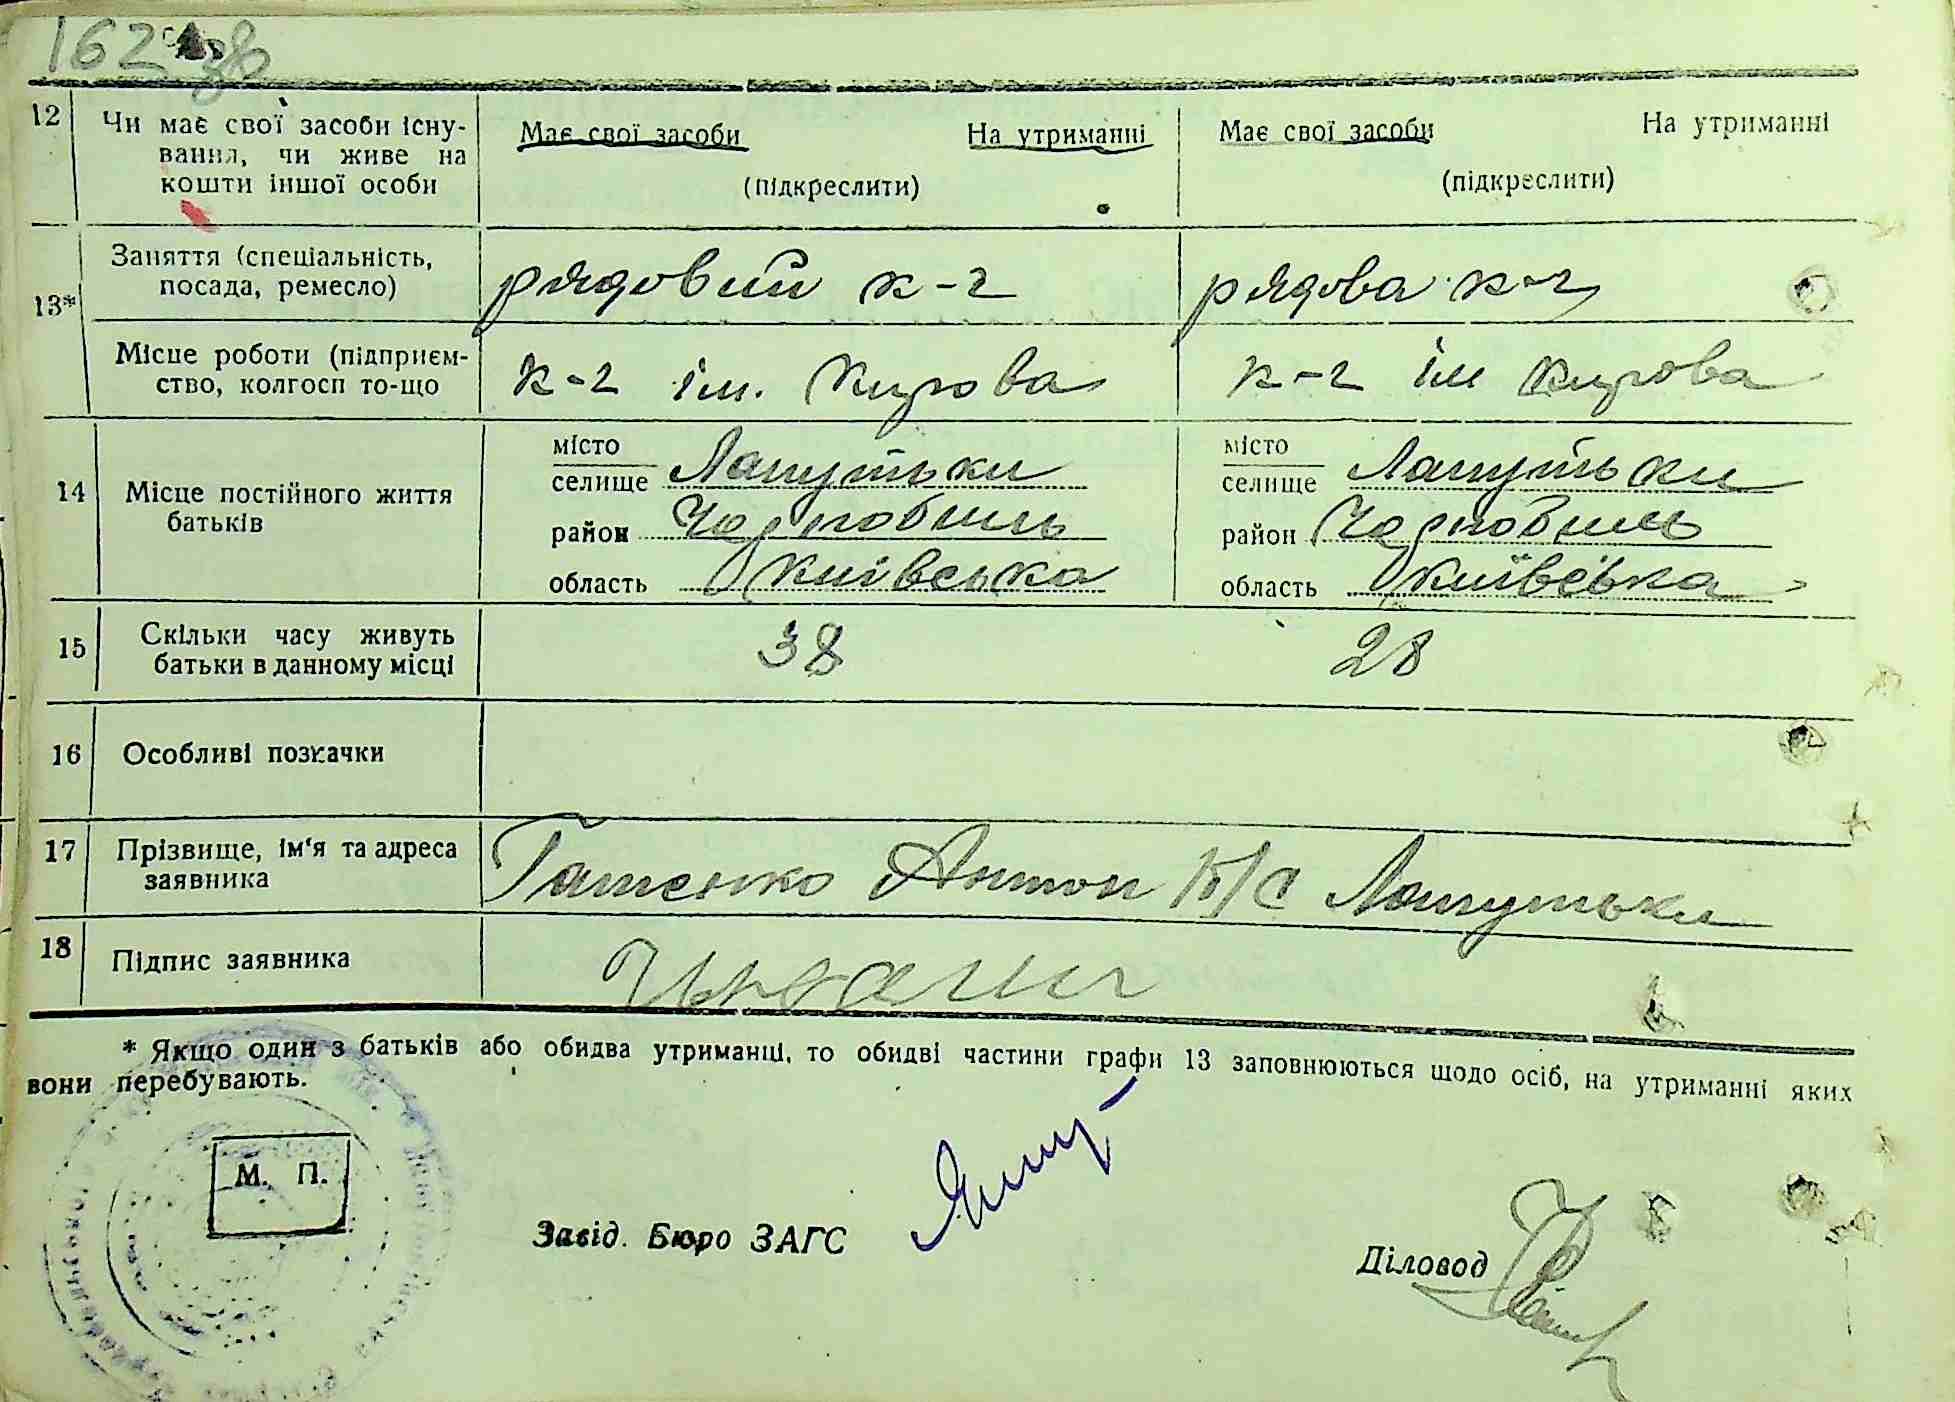 162 зв
12
Чи має свої засоби існу-
вання, чи живе на
кошти іншої особи
Має свої засоби На утриманні
(підкреслити)
Має свої засоби На утриманні
(підкреслити)
13*
Заняття (спеціальність,
посада, ремесло)
рядовий к-г
рядова к-г
Місце роботи (підприєм-
ство, колгосп то-що
к-г ім. Кирова
к-г ім Кирова
14
Місце постійного життя
батьків
місто
селище Лапутьки
район Чорнобиль
область Київська
місто
селище Лапутьки
район Чорнобиль
область Київська
15
Скільки часу живуть
батьки в данному місці
38
28
16
Особливі позначки
17
Прізвище, ім'я та адреса
заявника
Гатенко Антон Лапутьки
18
Підпис заявника
* Якщо один з батьків або обидва утриманці, то обидві частини графи 13 заповнюються щодо осіб, на утриманні яких
вони перебувають.
М. П.
Завід. Бюро ЗАГС
Діловод